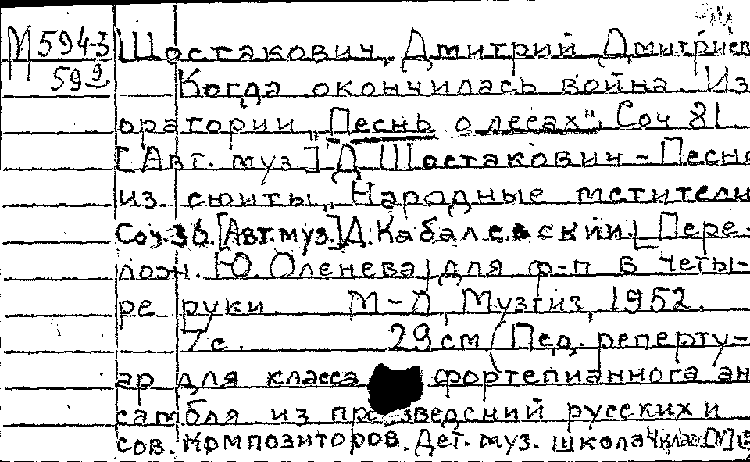 М 594-3 Шостакович, Дмитрий Дмитриев
59 9 Когда окончилась война. Из
оратории „Песнь о лесах". Соч 81
[Авт. муз.] Д Шостакович - Песня
из сюиты „Народные мстители
Соч.36. [Авт.муз.] Д. Кабалевский [Пере-
лож. Ю. Оленева] для ф-п в четы-
ре руки. М-Л, Музгиз, 1952.
7с. 29 см (Пед. реперту-
ар для класса фортепианнога ан
самбля из произведений русских и
сов. композиторов. Дет. муз. школа